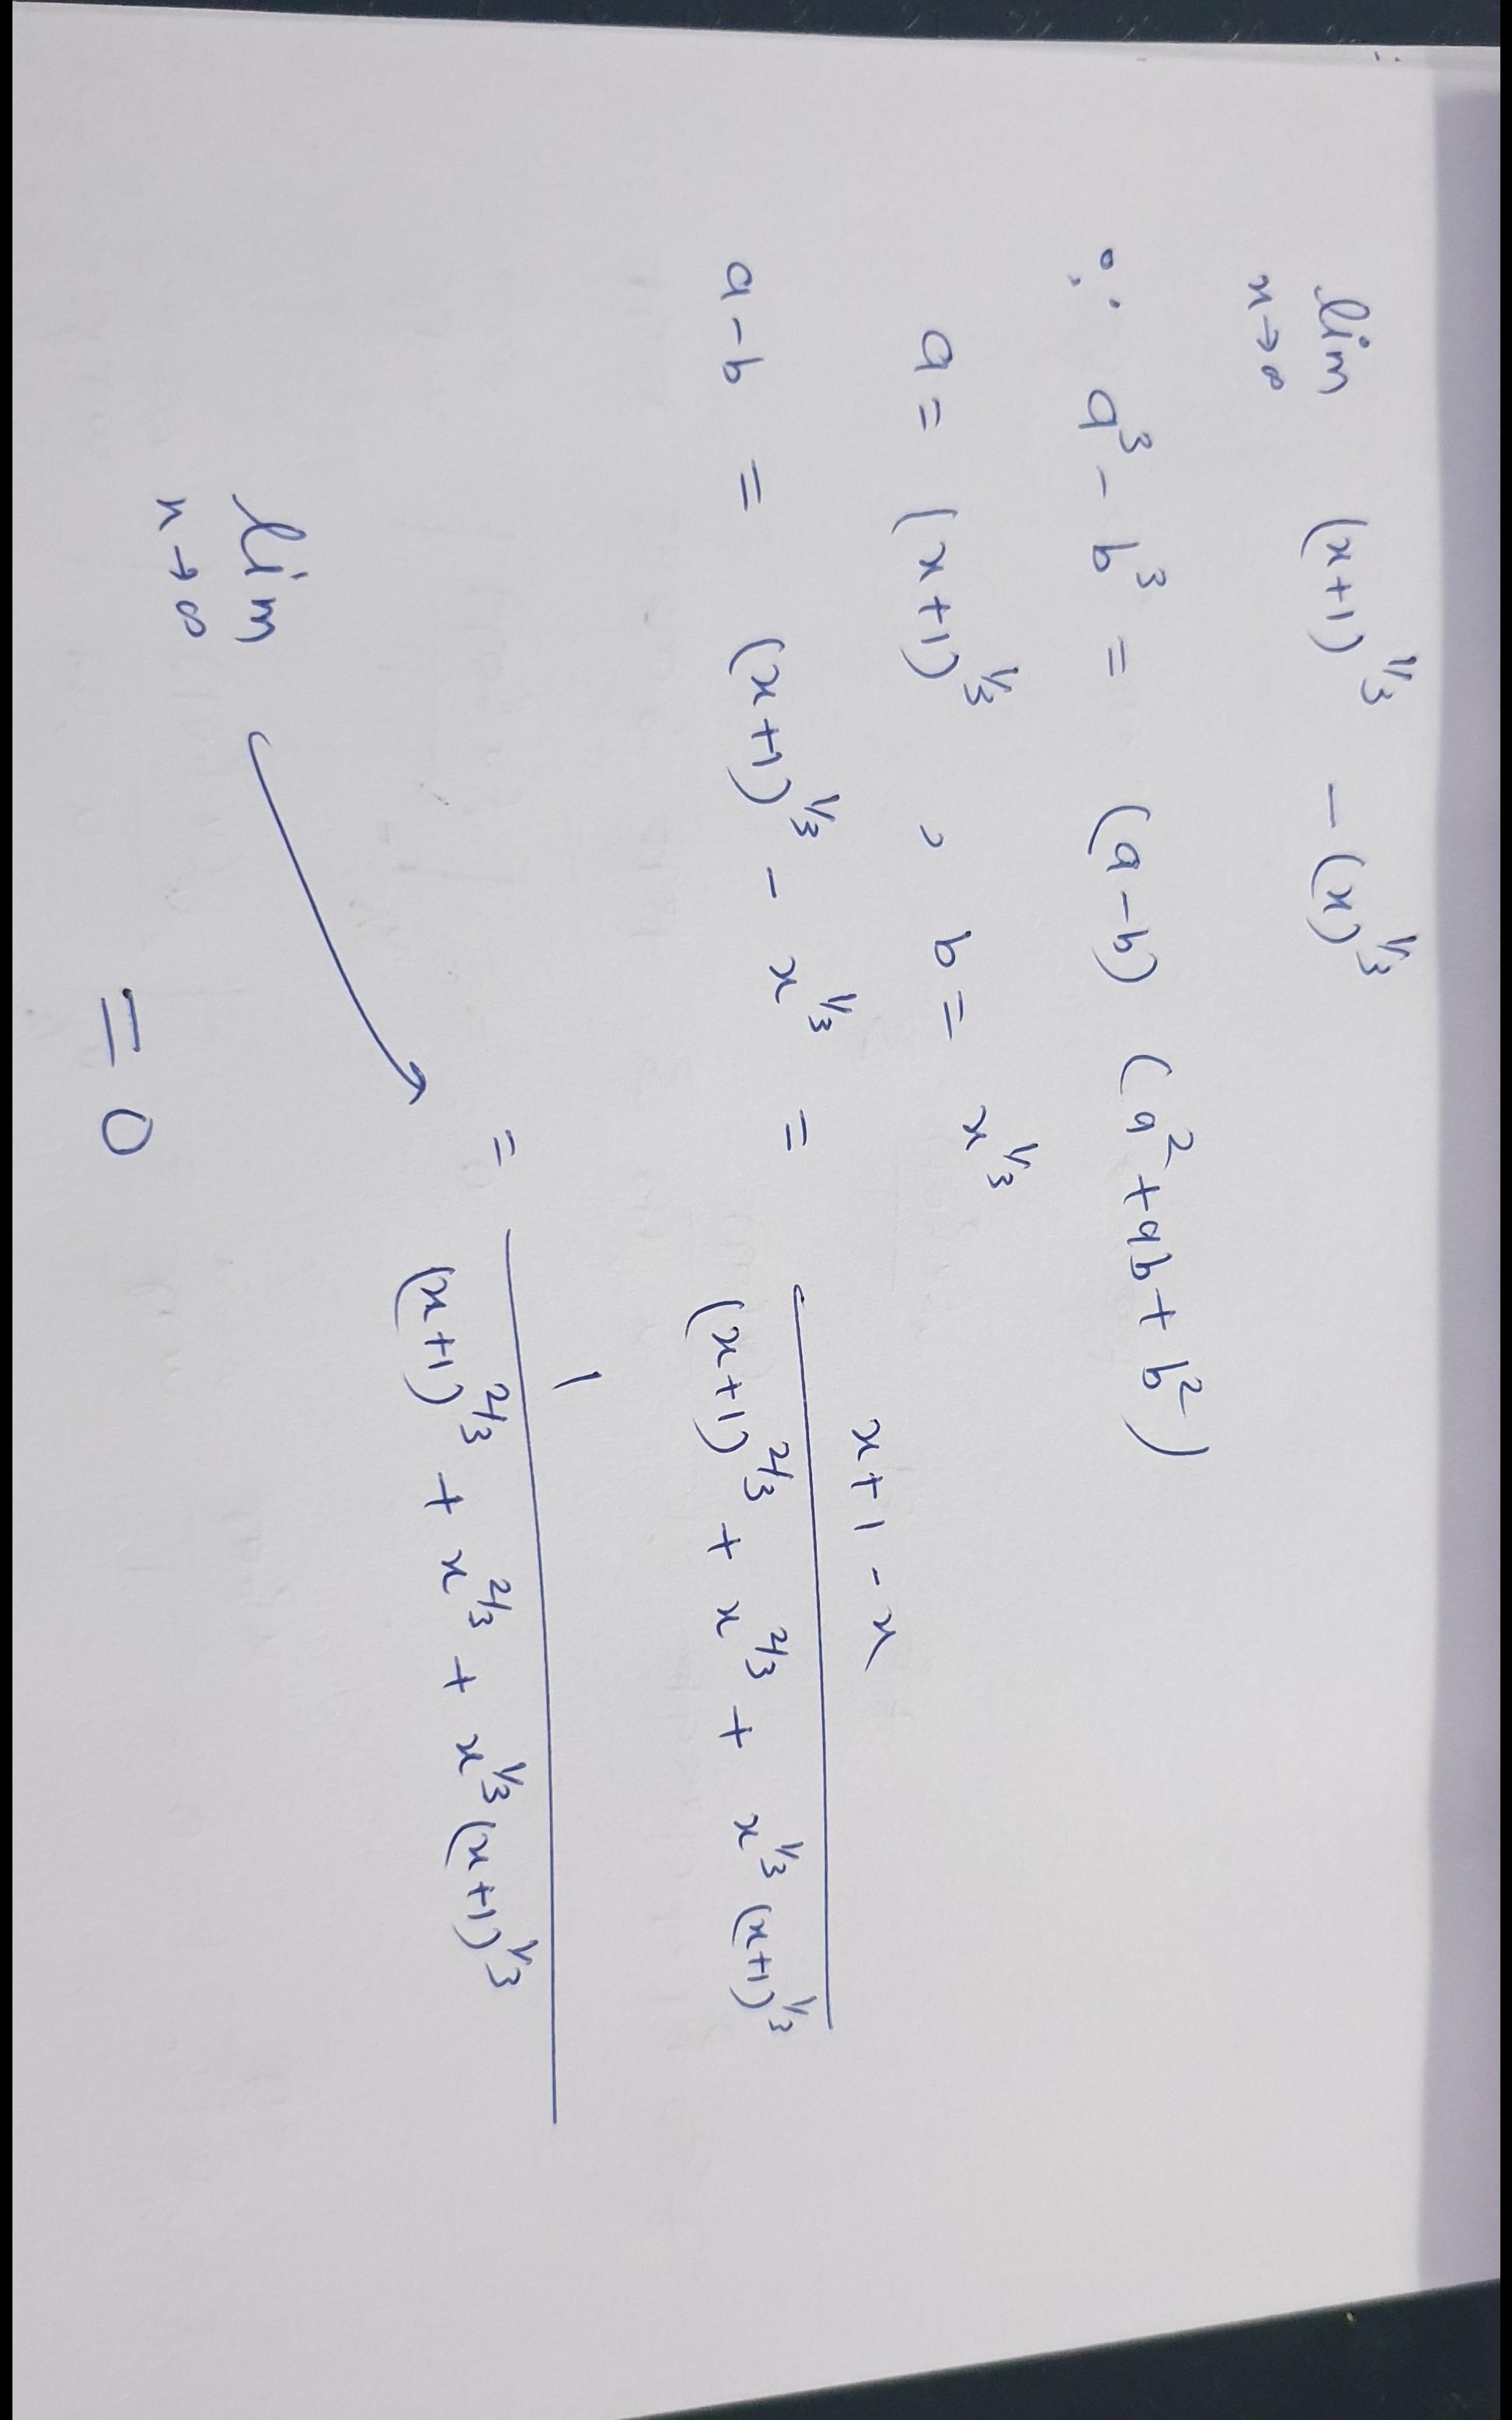 lim (x+1)^1/3 - (x)^1/3
x→∞
∵ a^3 - b^3 = (a-b) (a^2+ab+b^2)
a = (x+1)^1/3 , b = x^1/3
a-b = (x+1)^1/3 - x^1/3 = (x+1-x) / ((x+1)^2/3 + x^2/3 + x^1/3 (x+1)^1/3)
= 1 / ((x+1)^2/3 + x^2/3 + x^1/3 (x+1)^1/3)
lim
x→∞
= 0